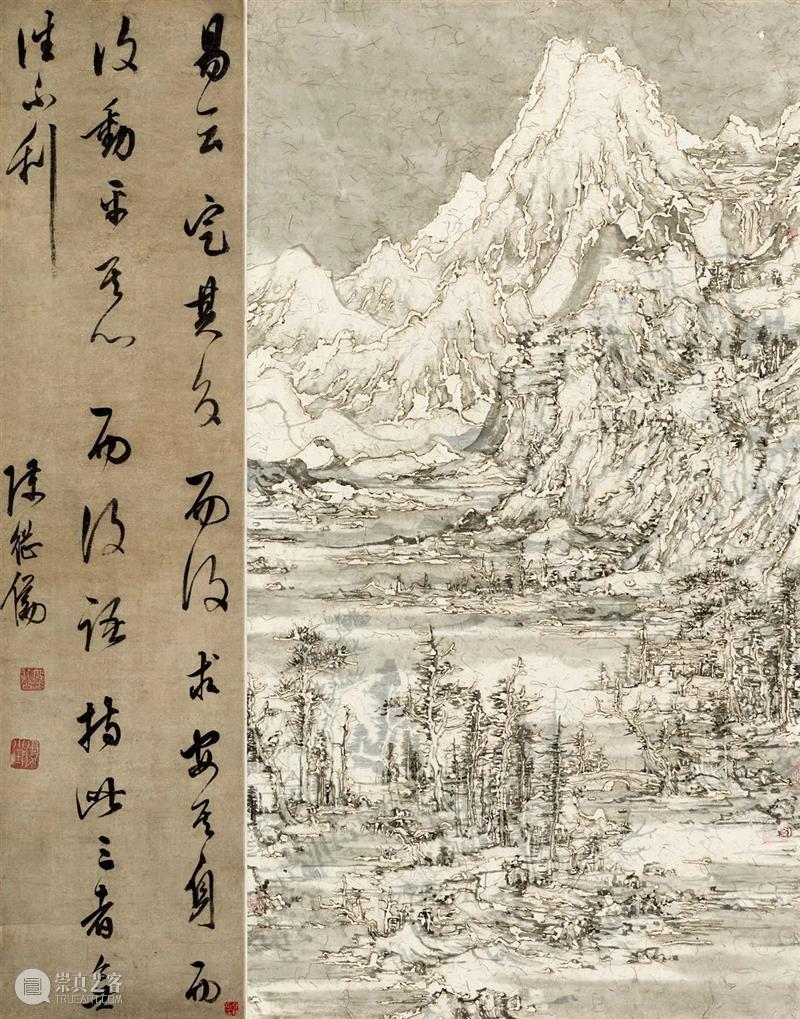 易云定其交而後求安其身而
後動平其心而後語持此三者無
往不利
陳繼儒
崇真艺客
TRUEART.COM